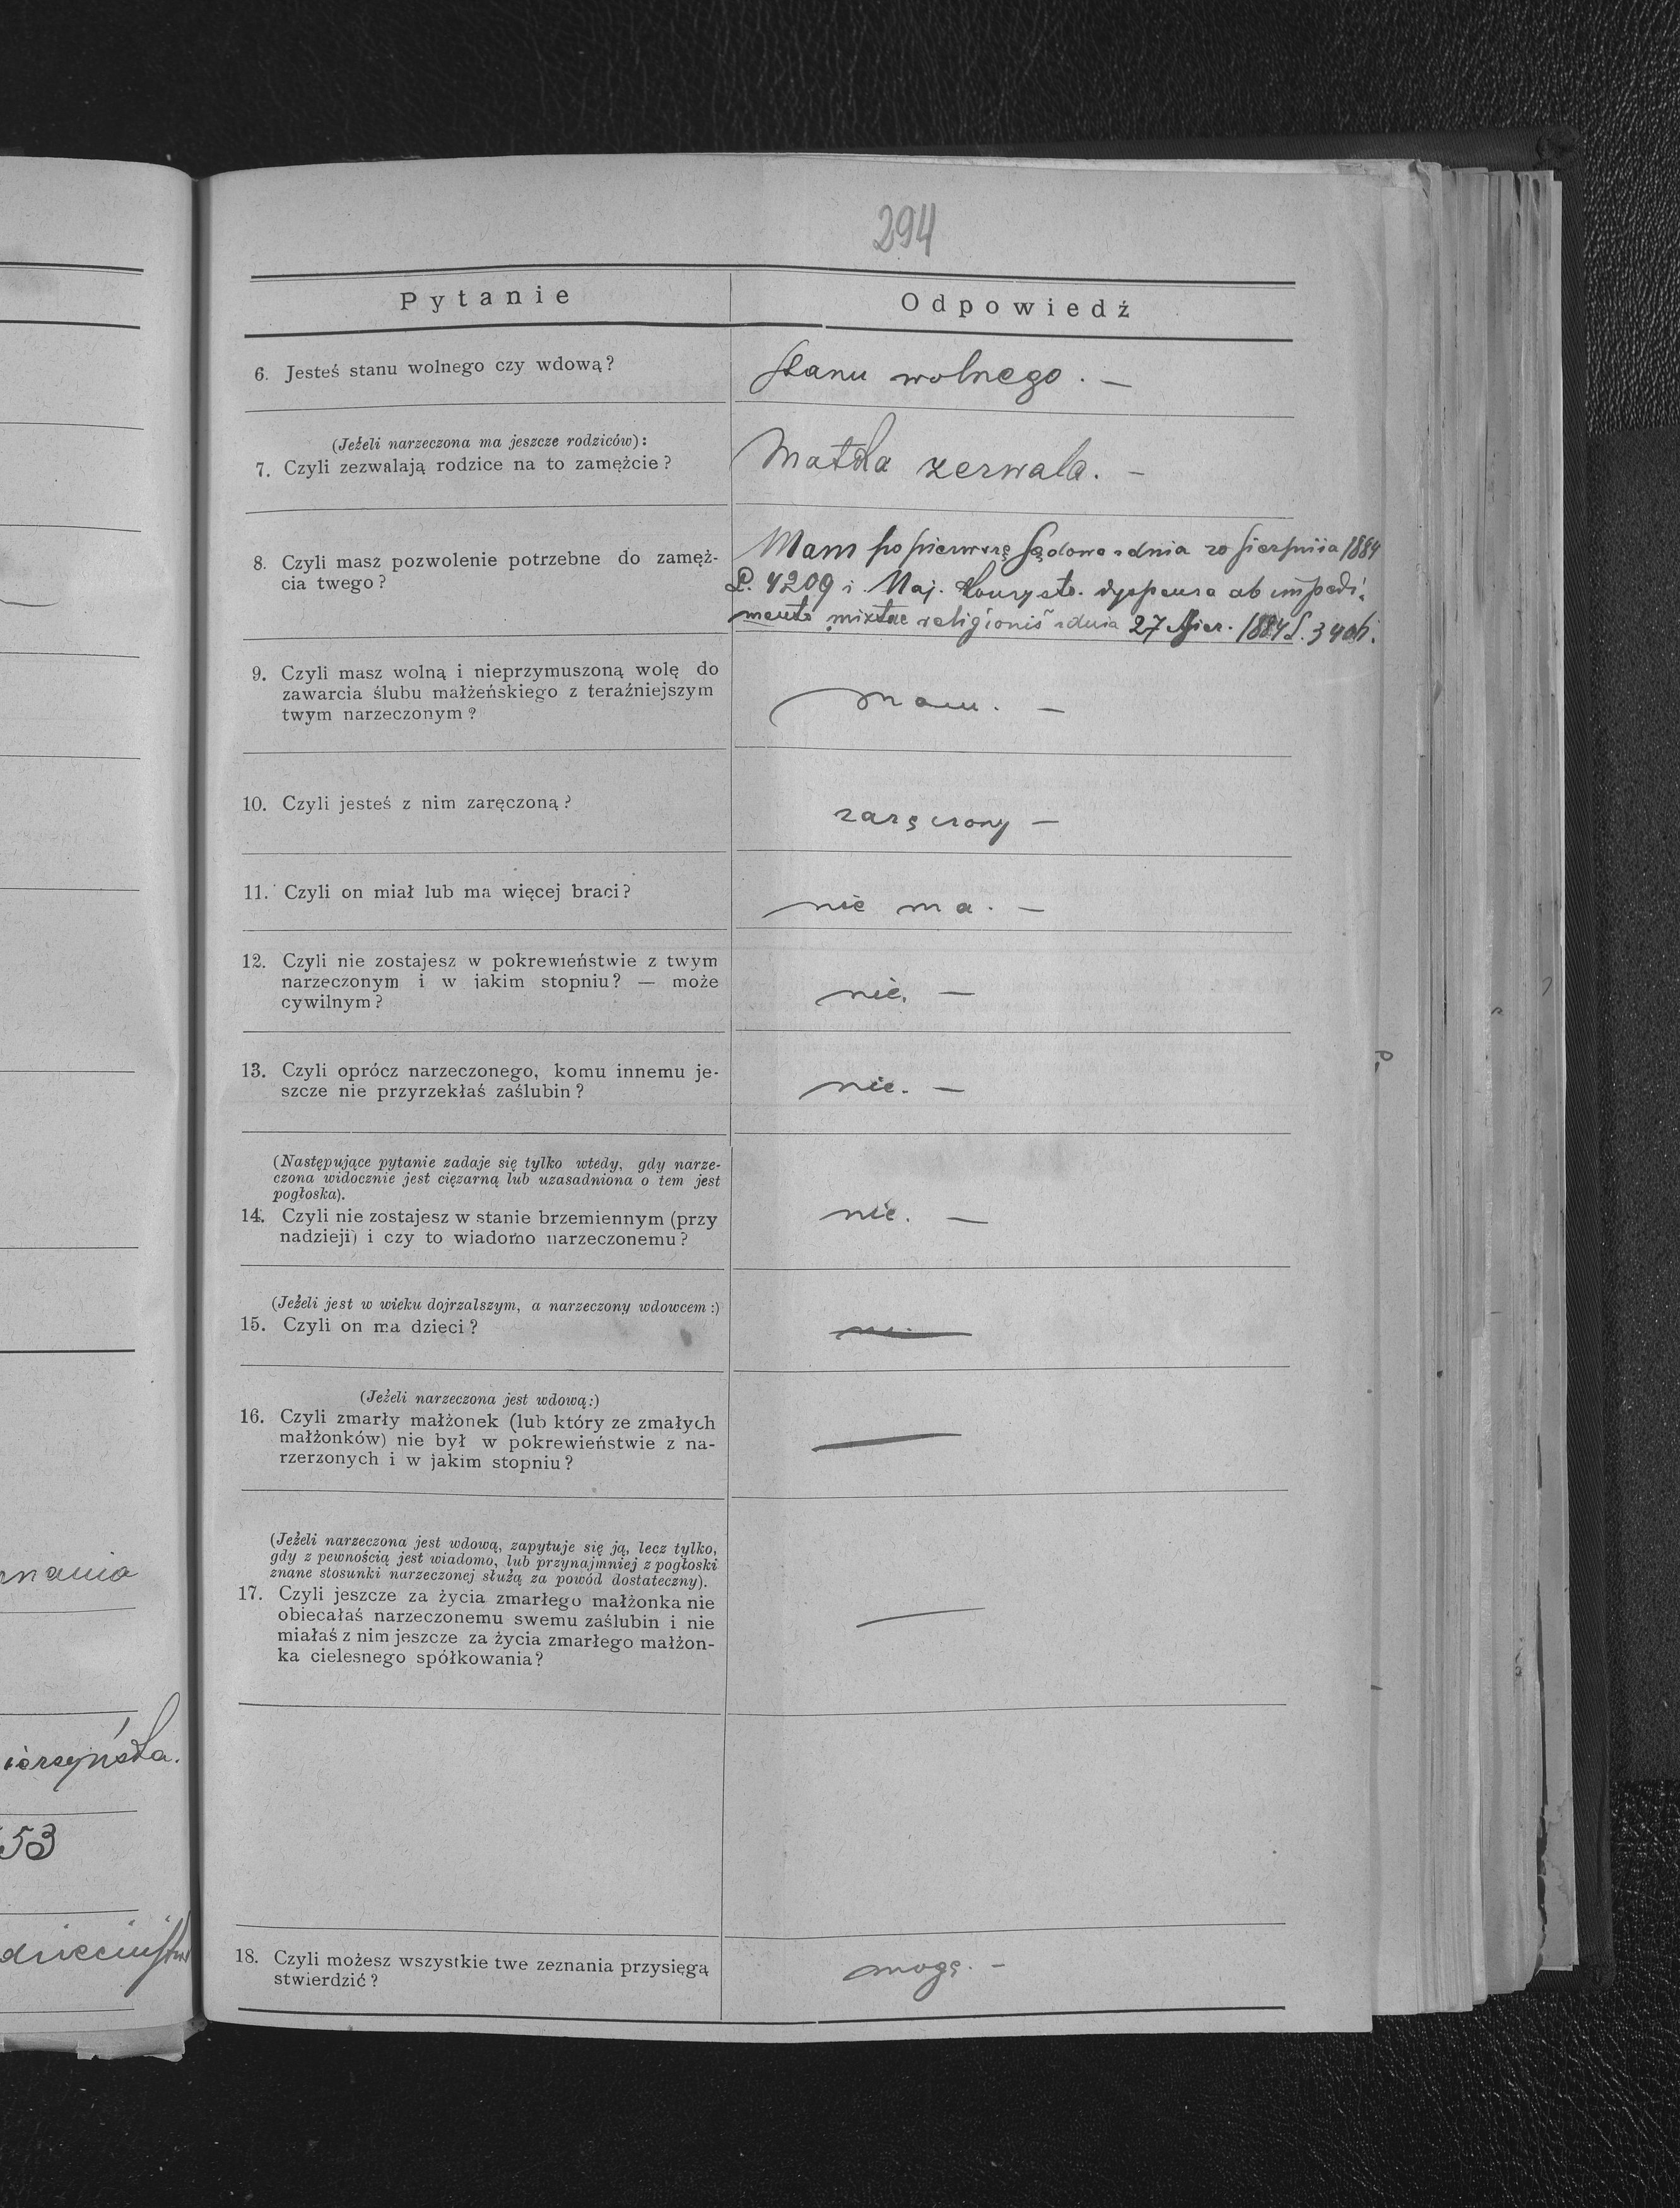 294
Pytanie
Odpowiedź
6. Jesteś stanu wolnego czy wdową?
stanu wolnego. —
(Jeżeli narzeczona ma jeszcze rodziców):
7. Czyli zezwalają rodzice na to zamężcie?
Matka zezwala. —
8. Czyli masz pozwolenie potrzebne do zamęż-
cia twego?
Mam po pierwsze Sądowe z dnia 20 sierpnia 1884
L. 4209 i. Naj. Konsysto. dyspensa ab impedi-
mento mixtae religionis z dnia 27 Sier. 1884 L.
9. Czyli masz wolną i nieprzymuszoną wolę do
zawarcia ślubu małżeńskiego z teraźniejszym
twym narzeczonym?
mam. —
10. Czyli jesteś z nim zaręczoną?
zaręczony —
11. Czyli on miał lub ma więcej braci?
nie ma. —
12. Czyli nie zostajesz w pokrewieństwie z twym
narzeczonym i w jakim stopniu? — może
cywilnym?
nie. —
13. Czyli oprócz narzeczonego, komu innemu je-
szcze nie przyrzekłaś zaślubin?
nie. —
(Następujące pytanie zadaje się tylko wtedy, gdy narze-
czona widocznie jest ciężarną lub uzasadniona o tem jest
pogłoska).
14. Czyli nie zostajesz w stanie brzemiennym (przy
nadzieji) i czy to wiadomo narzeczonemu?
nie. —
(Jeżeli jest w wieku dojrzalszym, a narzeczony wdowcem:)
15. Czyli on ma dzieci?
(Jeżeli narzeczona jest wdową:)
16. Czyli zmarły małżonek (lub który ze zmałych
małżonków) nie był w pokrewieństwie z na-
rzerzonych i w jakim stopniu?
—
(Jeżeli narzeczona jest wdową, zapytuje się ją, lecz tylko,
gdy z pewnością jest wiadomo, lub przynajmniej z pogłoski
znane stosunki narzeczonej służą za powód dostateczny).
17. Czyli jeszcze za życia zmarłego małżonka nie
obiecałaś narzeczonemu swemu zaślubin i nie
miałaś z nim jeszcze za życia zmarłego małżon-
ka cielesnego spółkowania?
—
18. Czyli możesz wszystkie twe zeznania przysięgą
stwierdzić?
mogę. —
53